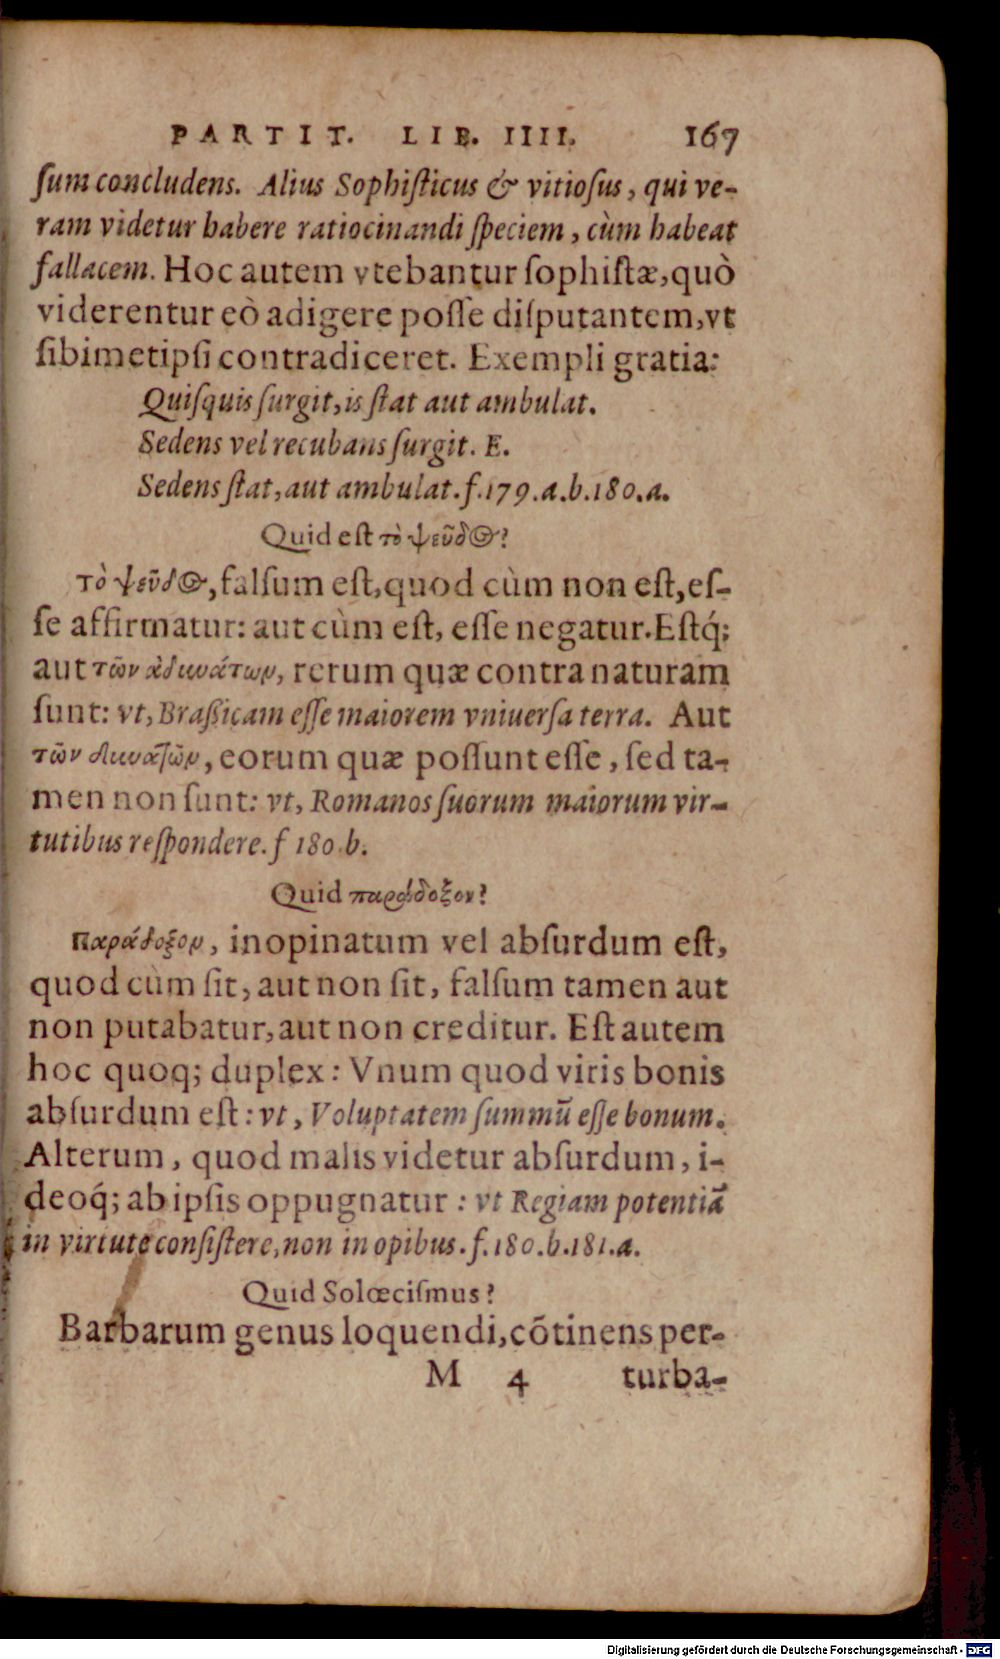 PARTIT. LIB. IIII. 167
ſum concludens. Alius Sophiſticus & vitioſus, qui ve-
ram videtur habere ratiocinandi ſpeciem, cùm habeat
fallacem. Hoc autem vtebantur ſophiſtæ, quò
viderentur eò adigere poſſe diſputantem, vt
ſibimetipſi contradiceret. Exempli gratia:
Quiſquis ſurgit, is ſtat aut ambulat.
Sedens vel recubans ſurgit. E.
Sedens ſtat, aut ambulat. f. 179. a. b. 180. a.
Quid eſt τὸ ψεῦδος?
τὸ ψεῦδος, falſum eſt, quod cùm non eſt, eſ-
ſe affirmatur: aut cùm eſt, eſſe negatur. Eſtq́;
aut τῶν ἀδυνάτων, rerum quæ contra naturam
ſunt: vt, Braßicam eſſe maiorem vniuerſa terra. Aut
τῶν δυνατῶν, eorum quæ poſſunt eſſe, ſed ta-
men non ſunt: vt, Romanos ſuorum maiorum vir-
tutibus reſpondere. f 180. b.
Quid παράδοξον?
Παράδοξον, inopinatum vel abſurdum eſt,
quod cùm ſit, aut non ſit, falſum tamen aut
non putabatur, aut non creditur. Eſt autem
hoc quoq; duplex: Vnum quod viris bonis
abſurdum eſt: vt, Voluptatem ſummũ eſſe bonum.
Alterum, quod malis videtur abſurdum, i-
deoq́; ab ipſis oppugnatur: vt Regiam potentiã
in virtute conſiſtere, non in opibus. f. 180. b. 181. a.
Quid Solœciſmus?
Barbarum genus loquendi, cõtinens per-
M 4 turba-
Digitalisierung gefördert durch die Deutsche Forschungsgemeinschaft - DFG